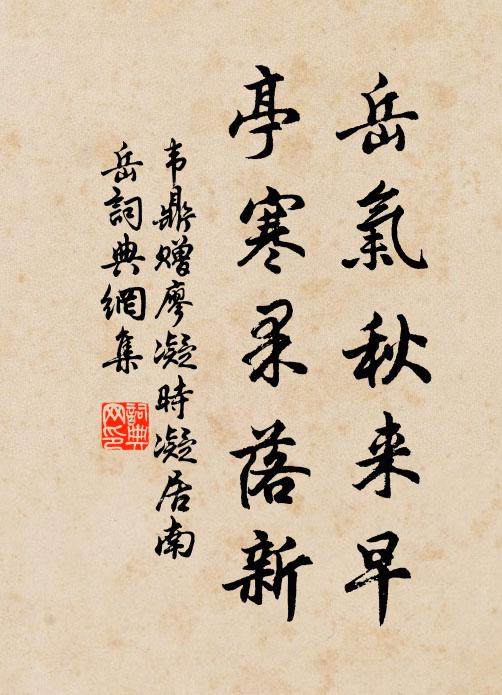 岳氣秋来早
亭寒果落新
韦鼎赠廖凝時凝居南
岳詞典網集
詞典网印